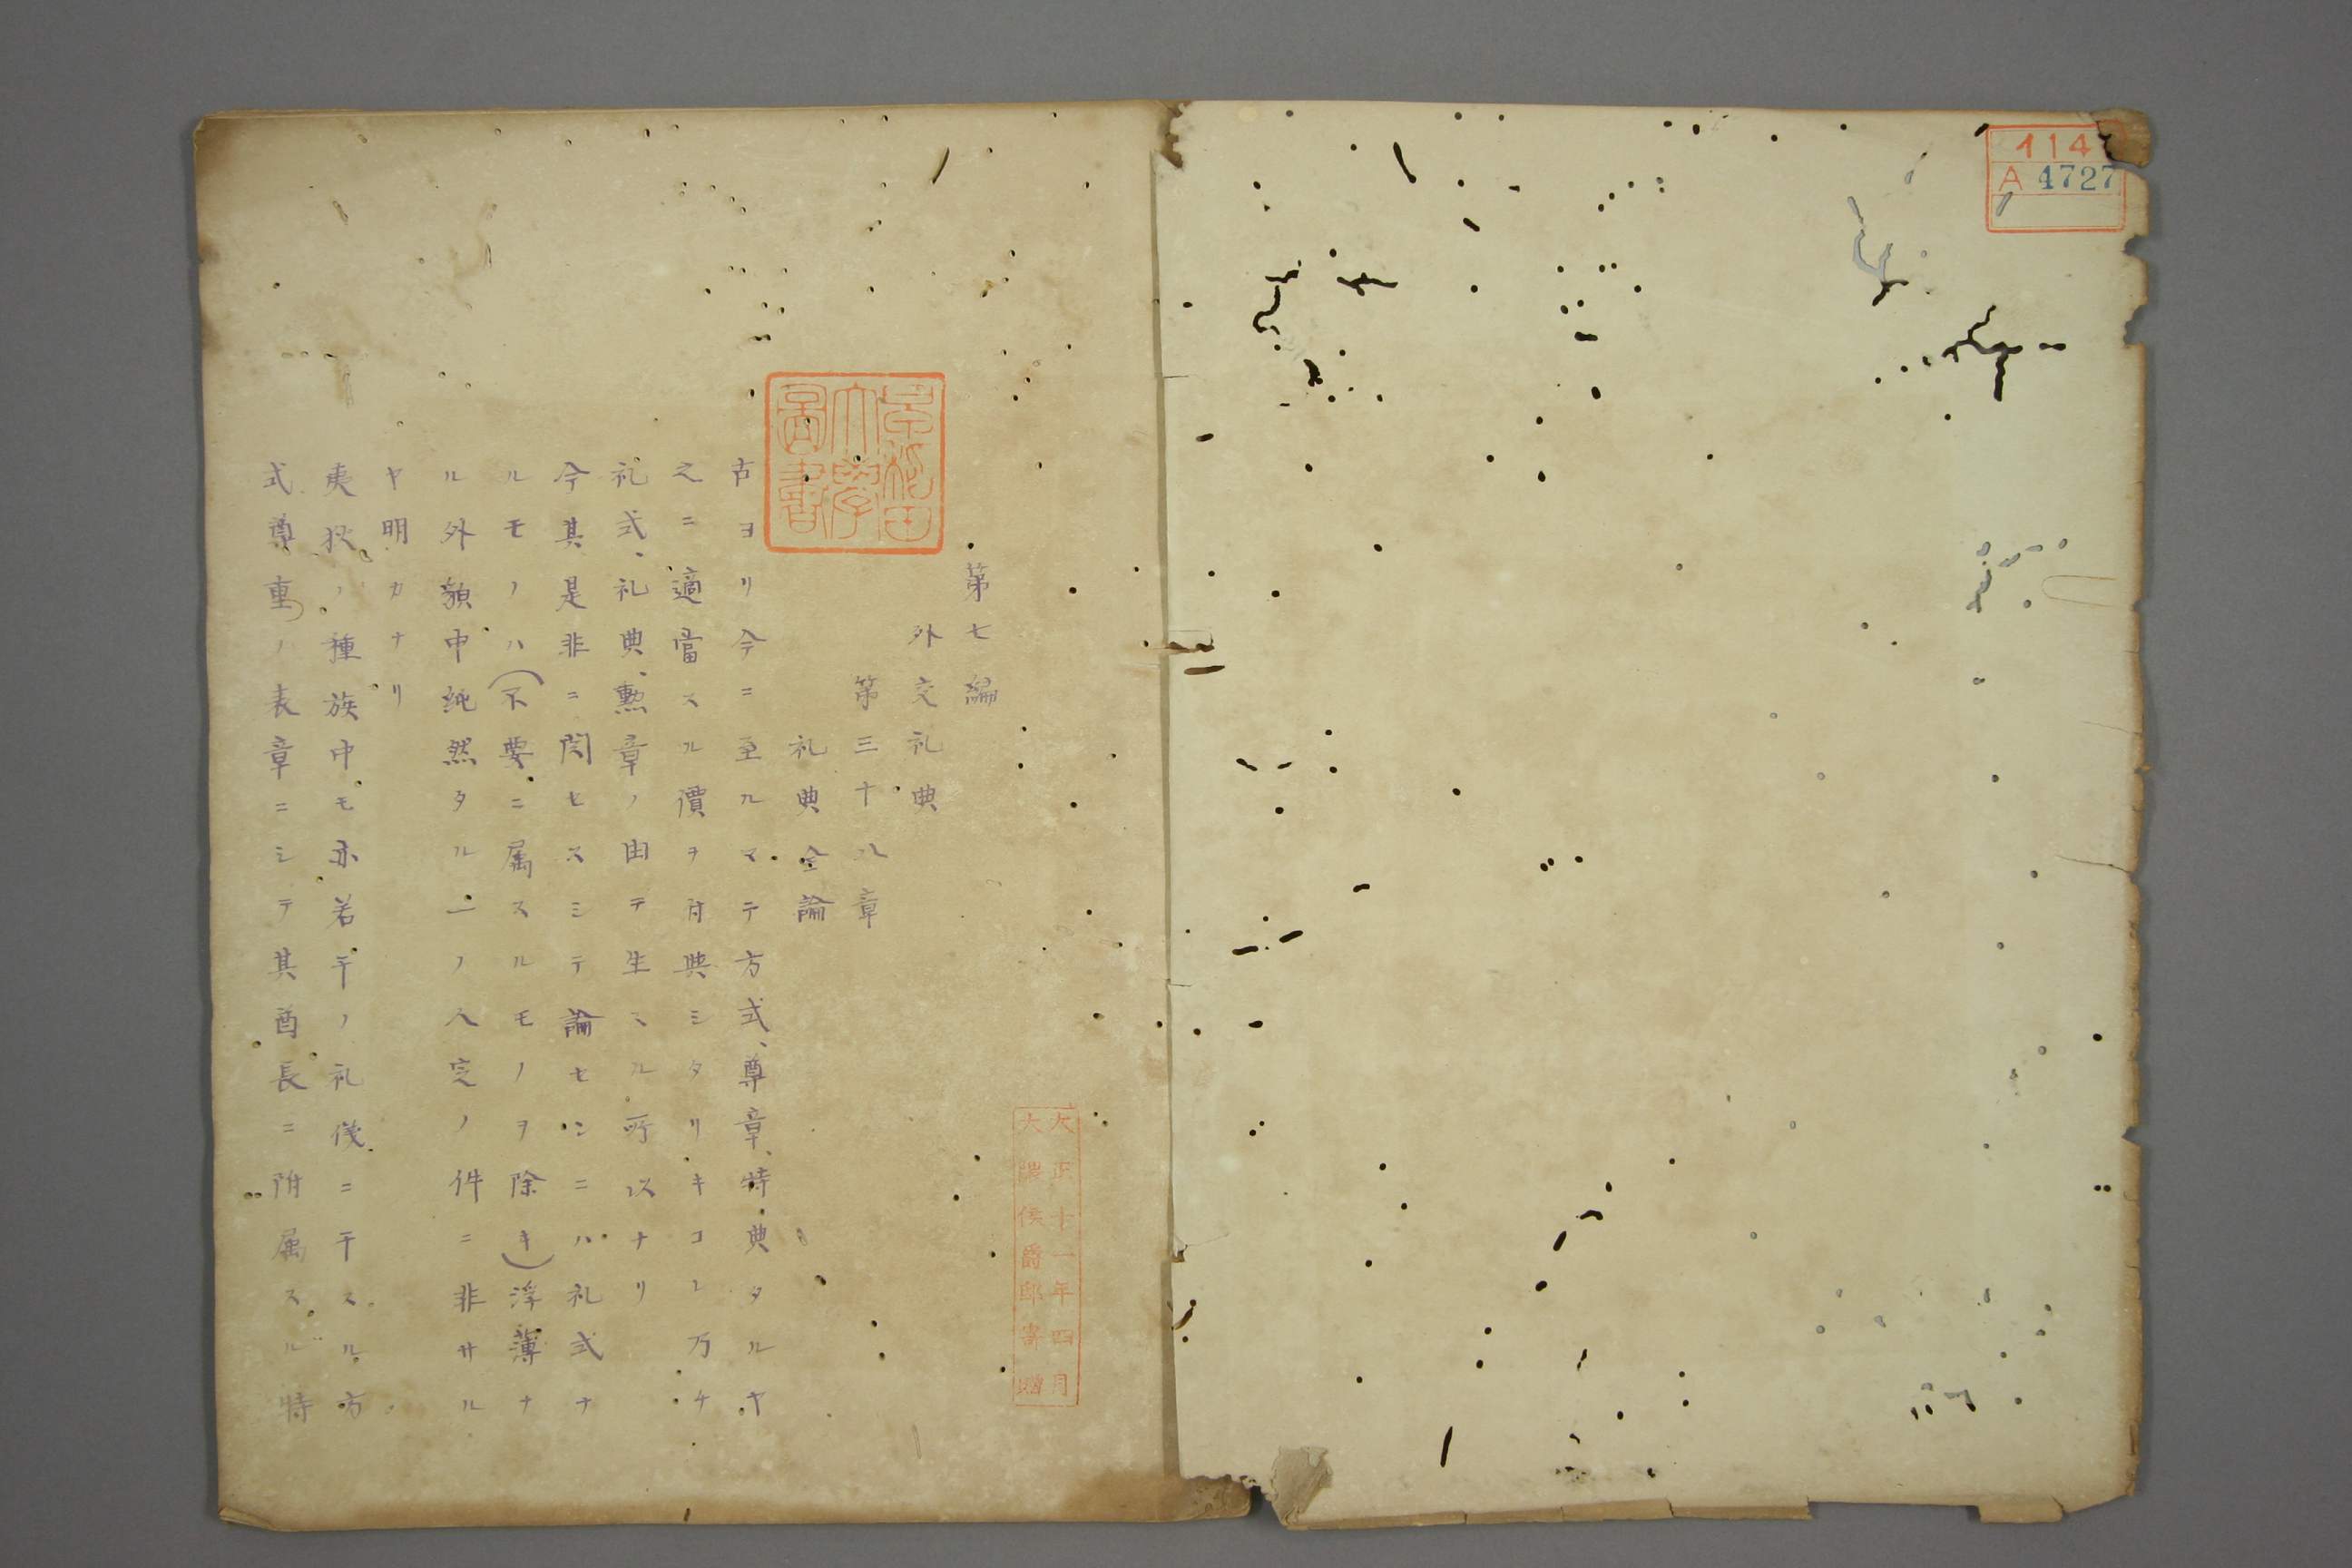 114
A 4727
1
早稲田
大學
圖書
大正十一年四月
大隈侯爵邸寄贈
第七編
外交礼典
第三十八章
礼典全論
古ヨリ今ニ至ルマテ方式、尊章、特典タルヤ
之ニ適當スル價ヲ附與シタリキコレ万チ
礼式、礼典、勲章ノ由テ生スル所以ナリ
今其是非ニ関セスシテ論センニハ礼式ナ
ルモノハ(不要ニ属スルモノヲ除キ)浮薄ナ
ル外貌中純然タル一ノ人定ノ件ニ非サル
ヤ明カナリ
夷狄ノ種族中モ亦若干ノ礼儀ニ干スル方
式尊重ノ表章ニシテ其酋長ニ附属スル特